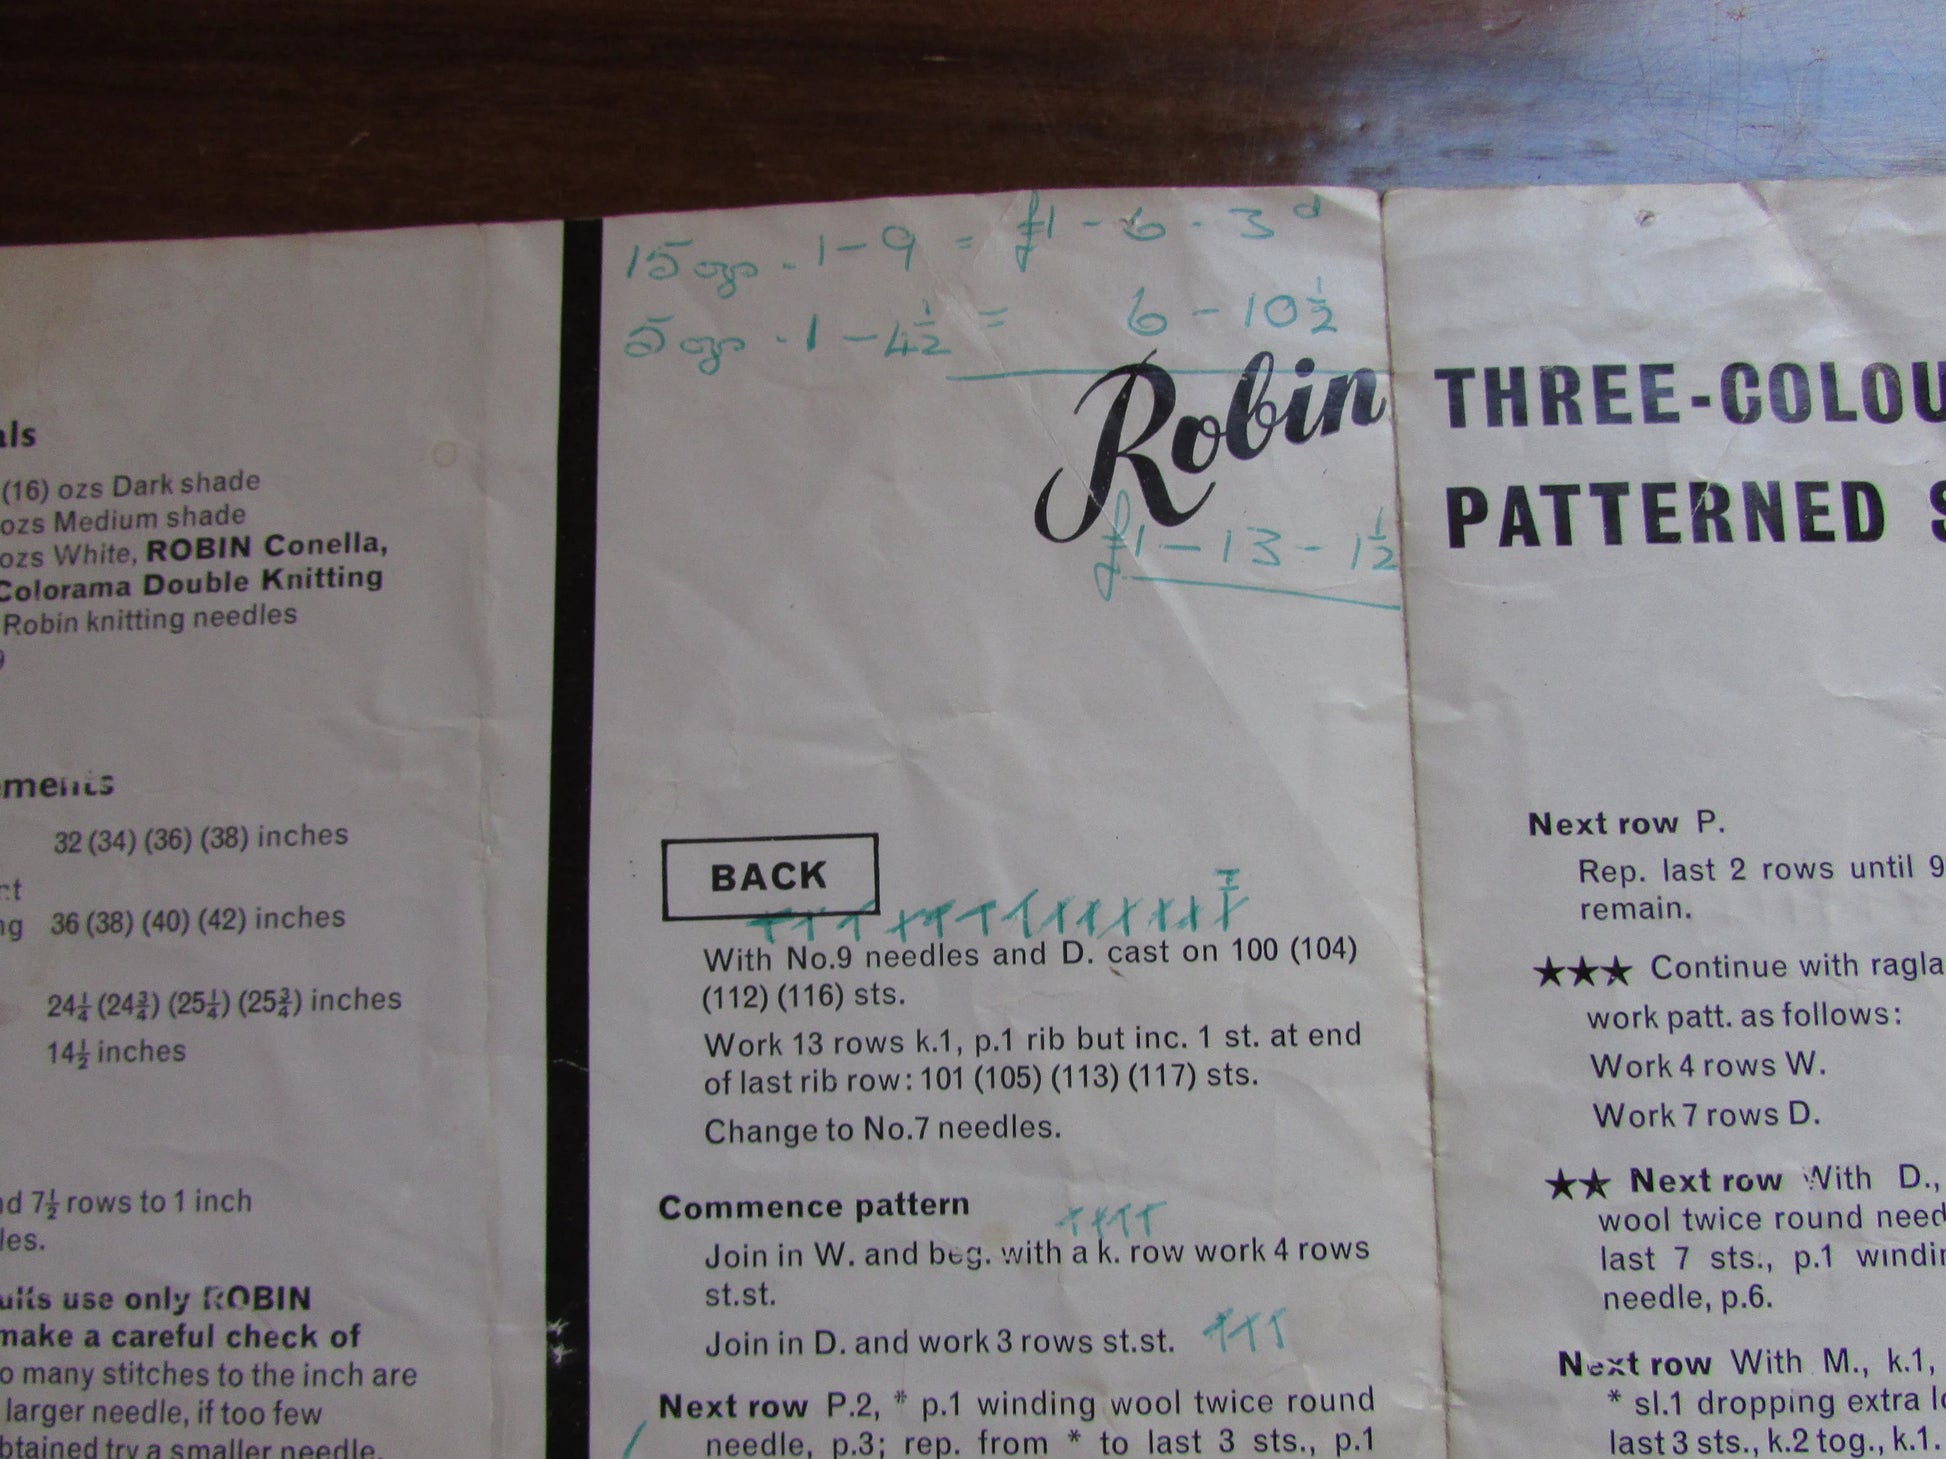 als
(16) ozs Dark shade
ozs Medium shade
ozs White, ROBIN Conella,
Colorama Double Knitting
Robin knitting needles
ements
32 (34) (36) (38) inches
36 (38) (40) (42) inches
24¼ (24¾) (25¼) (25¾) inches
14½ inches
7½ rows to 1 inch
les.
use only ROBIN
make a careful check of
many stitches to the inch are
larger needle, if too few
obtained try a smaller needle.
15 ozs . 1 - 9 = £1 - 6 - 3 d
5 ozs . 1 - 4½ = 6 - 10½
Robin
£1 - 13 - 1½
BACK
With No.9 needles and D. cast on 100 (104)
(112) (116) sts.
Work 13 rows k.1, p.1 rib but inc. 1 st. at end
of last rib row: 101 (105) (113) (117) sts.
Change to No.7 needles.
Commence pattern
Join in W. and beg. with a k. row work 4 rows
st.st.
Join in D. and work 3 rows st.st.
Next row P.2, * p.1 winding wool twice round
needle, p.3; rep. from * to last 3 sts., p.1
THREE-COLOU
PATTERNED S
Next row P.
Rep. last 2 rows until 9
remain.
★★★ Continue with ragla
work patt. as follows:
Work 4 rows W.
Work 7 rows D.
★★ Next row With D.,
wool twice round need
last 7 sts., p.1 windin
needle, p.6.
Next row With M., k.1,
* sl.1 dropping extra lo
last 3 sts., k.2 tog., k.1.